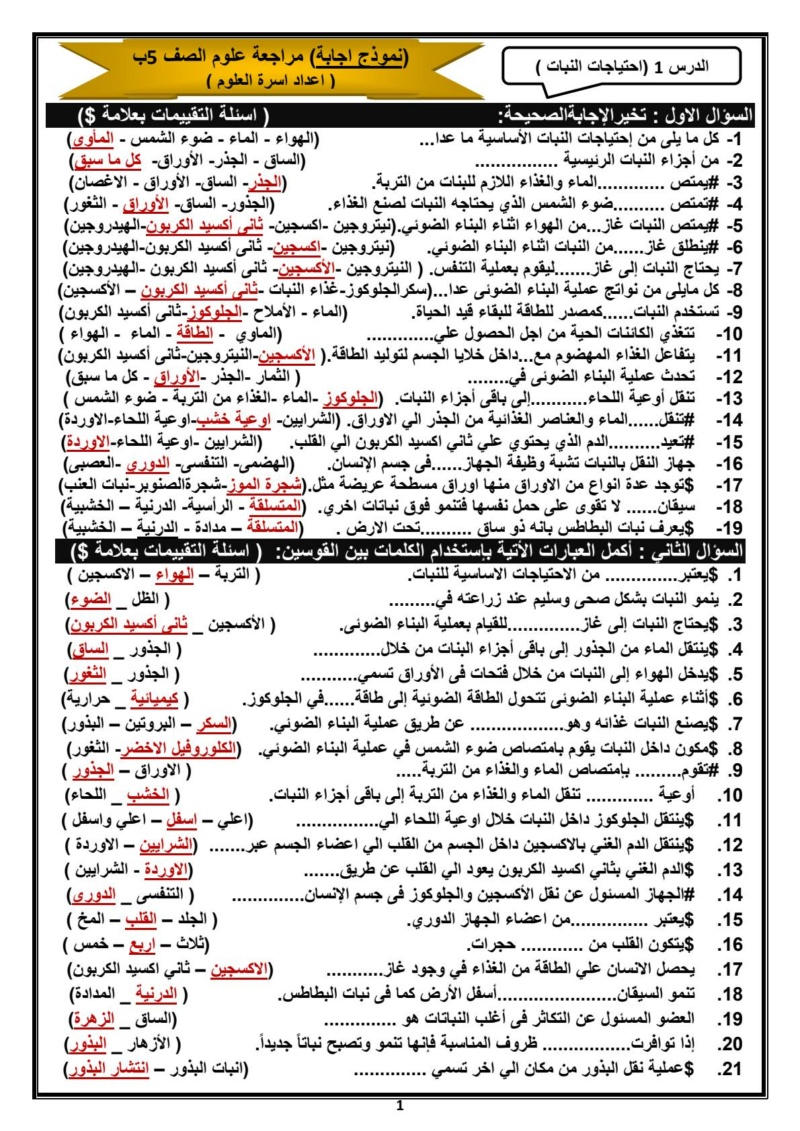 (نموذج اجابة) مراجعة علوم الصف 5ب
( اعداد اسرة العلوم )
الدرس 1 (احتياجات النبات )
السؤال الاول : تخيرالإجابةالصحيحة: ( اسئلة التقييمات بعلامة $)
1- كل ما يلى من إحتياجات النبات الأساسية ما عدا... (الهواء - الماء - ضوء الشمس - المأوى)
2- من أجزاء النبات الرئيسية ................ (الساق - الجذر- الأوراق- كل ما سبق)
3- #يمتص .............الماء والغذاء اللازم للبنات من التربة. (الجذر- الساق- الأوراق - الاغصان)
4- #تمتص ..........ضوء الشمس الذي يحتاجه النبات لصنع الغذاء. (الجذور- الساق- الأوراق - الثغور)
5- #يمتص النبات غاز...من الهواء اثناء البناء الضوئي.(نيتروجين -اكسجين- ثانى أكسيد الكربون-الهيدروجين)
6- #ينطلق غاز......من النبات اثناء البناء الضوئي. (نيتروجين -اكسجين- ثانى أكسيد الكربون-الهيدروجين)
7- يحتاج النبات إلى غاز.......ليقوم بعملية التنفس. ( النيتروجين -الأكسجين- ثانى أكسيد الكربون -الهيدروجين)
8- كل مايلى من نواتج عملية البناء الضوئى عدا...(سكرالجلوكوز-غذاء النبات -ثانى أكسيد الكربون – الأكسجين)
9- تستخدم النبات......كمصدر للطاقة للبقاء قيد الحياة. (الماء - الأملاح -الجلوكوز-ثانى أكسيد الكربون)
10- تتغذي الكائنات الحية من اجل الحصول علي............. (الماوي - الطاقة - الماء - الهواء )
11- يتفاعل الغذاء المهضوم مع...داخل خلايا الجسم لتوليد الطاقة.( الأكسجين-النيتروجين-ثانى أكسيد الكربون)
12- تحدث عملية البناء الضوئى في........ ( الثمار -الجذر -الأوراق - كل ما سبق)
13- تنقل أوعية اللحاء...........إلى باقى أجزاء النبات. (الجلوكوز -الماء -الغذاء من التربة - ضوء الشمس )
14- #تنقل......الماء والعناصر الغذائية من الجذر الي الاوراق. (الشرايين- اوعية خشب-اوعية اللحاء-الاوردة)
15- #تعيد..........الدم الذي يحتوي علي ثاني اكسيد الكربون الي القلب. (الشرايين -اوعية اللحاء-الاوردة)
16- جهاز النقل بالنبات تشبة وظيفة الجهاز......فى جسم الإنسان. (الهضمى- التنفسى- الدوري -العصبى)
17- $توجد عدة انواع من الاوراق منها اوراق مسطحة عريضة مثل.(شجرة الموز-شجرةالصنوبر-نبات العنب)
18- سيقان...... لا تقوى على حمل نفسها فتنمو فوق نباتات اخري. (المتسلقة - الرأسية- الدرنية – الخشبية)
19- $يعرف نبات البطاطس بانه ذو ساق ..........تحت الارض . (المتسلقة – مدادة - الدرنية – الخشبية)
السؤال الثاني : أكمل العبارات الأتية بإستخدام الكلمات بين القوسين: ( اسئلة التقييمات بعلامة $)
1. $يعتبر.............. من الاحتياجات الاساسية للنبات. ( التربة – الهواء – الاكسجين )
2. ينمو النبات بشكل صحى وسليم عند زراعته في......... ( الظل _ الضوء)
3. $يحتاج النبات إلى غاز..............للقيام بعملية البناء الضوئى. ( الأكسجين _ ثانى أكسيد الكربون)
4. $ينتقل الماء من الجذور إلى باقى أجزاء البنات من خلال............. ( الجذور _ الساق)
5. $يدخل الهواء إلى النبات من خلال فتحات فى الأوراق تسمي........... ( الجذور _ الثغور)
6. $أثناء عملية البناء الضوئى تتحول الطاقة الضوئية إلى طاقة......في الجلوكوز. ( كيميائية _ حرارية)
7. $يصنع النبات غذائه وهو.................. عن طريق عملية البناء الضوئي. (السكر – البروتين – البذور)
8. $مكون داخل النبات يقوم بامتصاص ضوء الشمس في عملية البناء الضوئي. (الكلوروفيل الاخضر- الثغور)
9. #تقوم......... بإمتصاص الماء والغذاء من التربة..... ( الاوراق – الجذور )
10. أوعية ............. تنقل الماء والغذاء من التربة إلى باقى أجزاء النبات. ( الخشب _ اللحاء)
11. $ينتقل الجلوكوز داخل النبات خلال اوعية اللحاء الي................ (اعلي – اسفل – اعلي واسفل )
12. $ينتقل الدم الغني بالاكسجين داخل الجسم من القلب الي اعضاء الجسم عبر....... (الشرايين – الاوردة )
13. $الدم الغني بثاني اكسيد الكربون يعود الي القلب عن طريق....... (الاوردة - الشرايين )
14. #الجهاز المسئول عن نقل الأكسجين والجلوكوز فى جسم الإنسان.............. ( التنفسى _ الدورى)
15. $يعتبر ...............من اعضاء الجهاز الدوري. ( الجلد – القلب – المخ )
16. $يتكون القلب من ............ حجرات. (ثلاث – اربع – خمس )
17. يحصل الانسان علي الطاقة من الغذاء في وجود غاز........... (الاكسجين – ثاني اكسيد الكربون)
18. تنمو السيقان.......................أسفل الأرض كما فى نبات البطاطس. ( الدرنية _ المدادة)
19. العضو المسئول عن التكاثر فى أغلب النباتات هو .............. (الساق _ الزهرة)
20. إذا توافرت................. ظروف المناسبة فإنها تنمو وتصبح نباتاً جديداً. ( الأزهار _ البذور)
21. $عملية نقل البذور من مكان الي اخر تسمي .............. (انبات البذور – انتشار البذور)
1